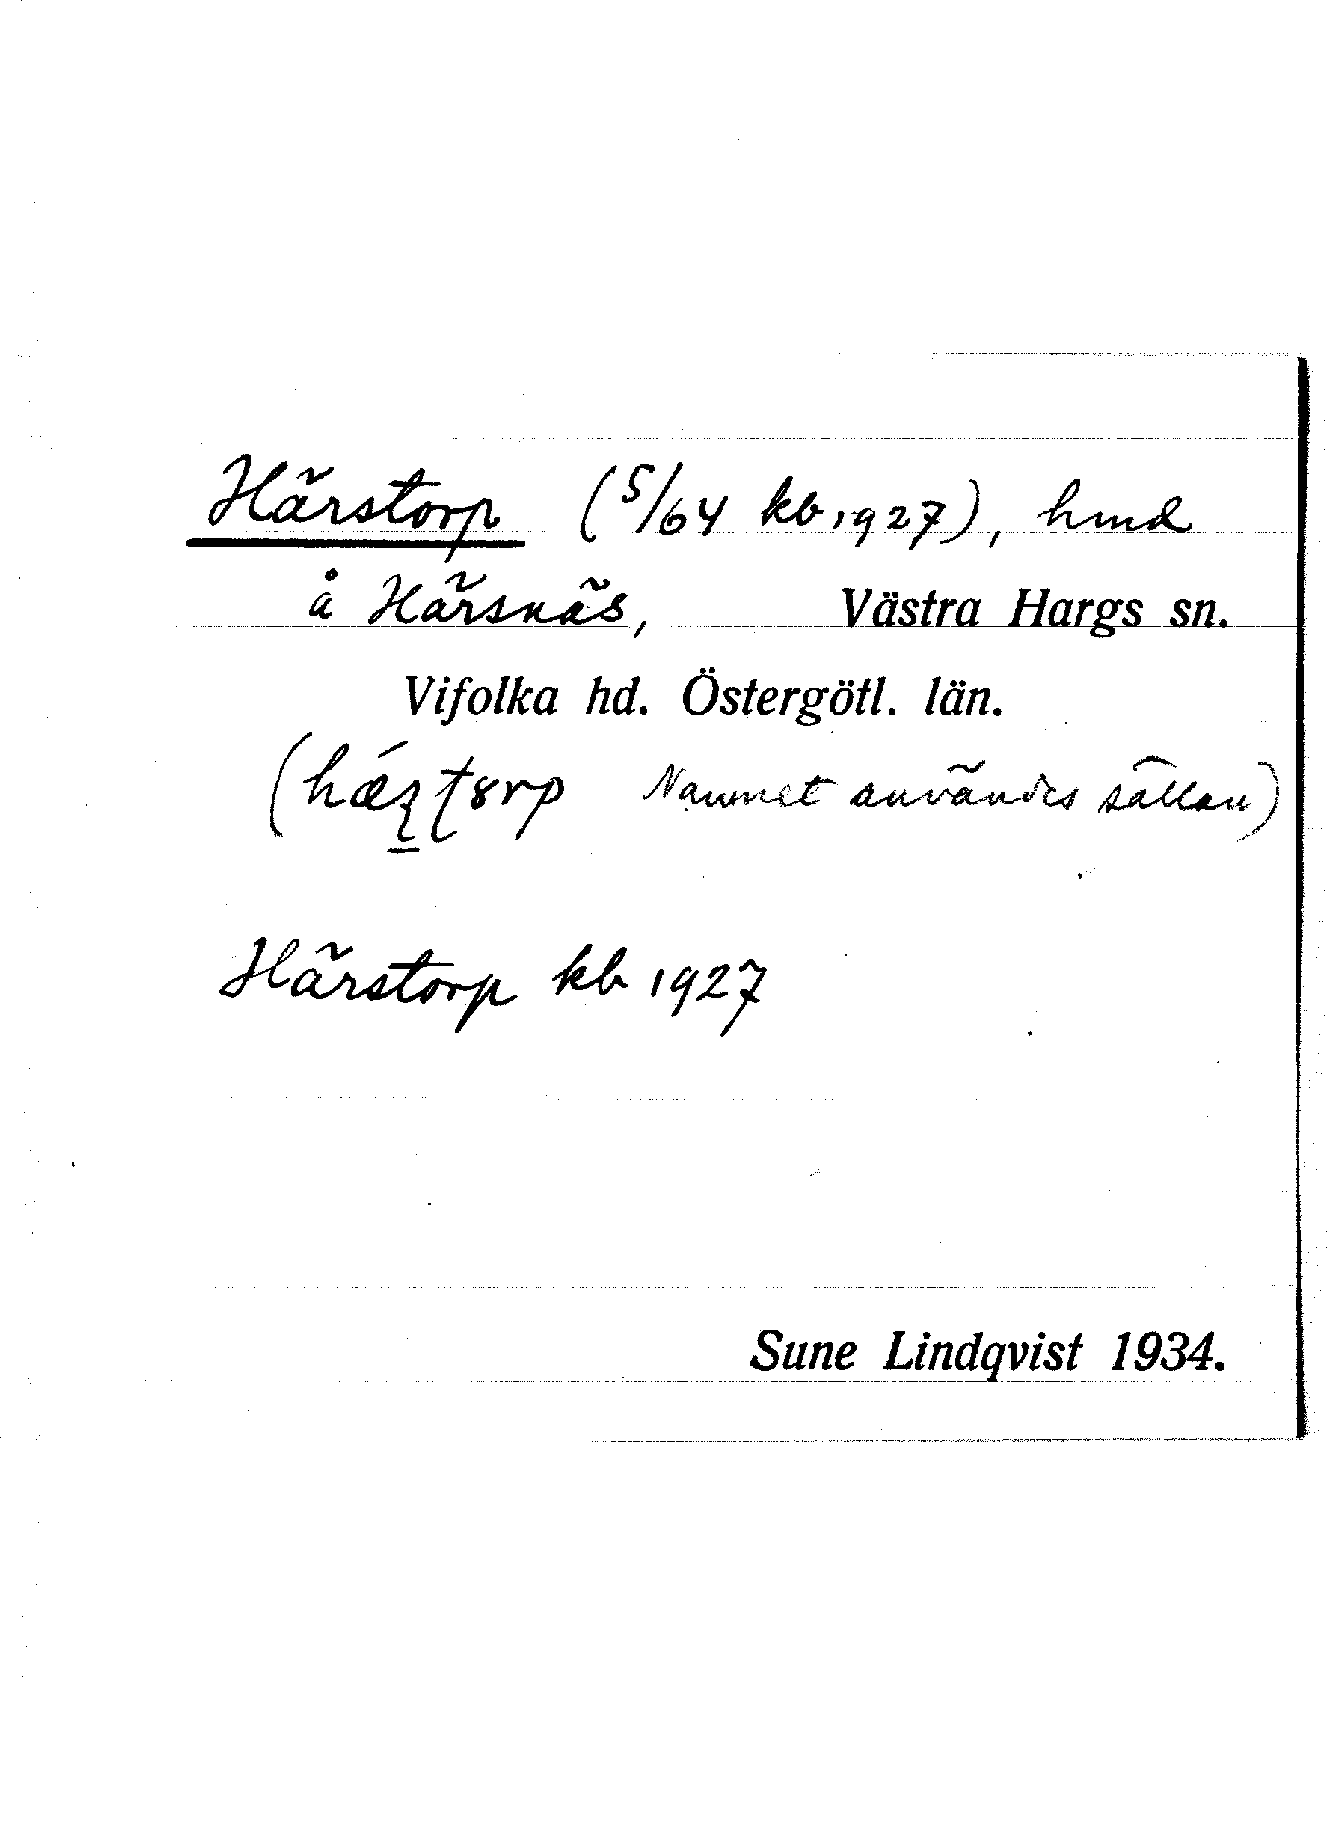 Härstorp (5/64 kb 1927), hmd
å Härsnäs, Västra Hargs sn.
Vifolka hd. Östergötl. län.
( Namnet användes sällan)
Härstorp kb 1927
Sune Lindqvist 1934.